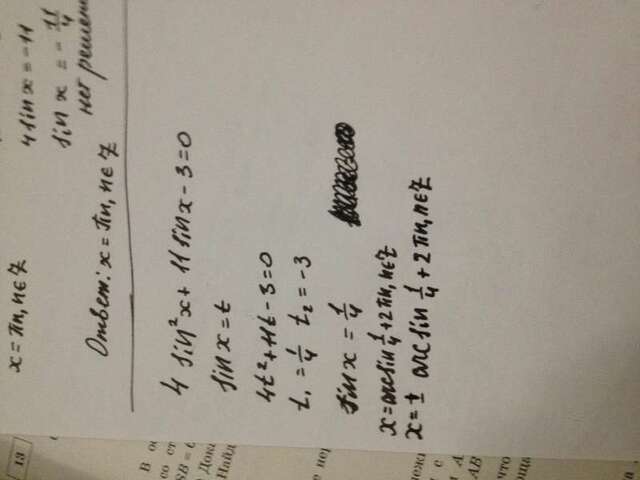 13
x = πn, n ∈ Z
4 sin x = -11
sin x = - 11/4
нет решен
Ответ: x = πn, n ∈ Z
4 sin²x + 11 sin x - 3 = 0
sin x = t
4t² + 11t - 3 = 0
t₁ = 1/4 t₂ = -3
sin x = 1/4
x = arcsin 1/4 + 2πn, n ∈ Z
x = ± arcsin 1/4 + 2πn, n ∈ Z
В
со ст
SB = 6
Дока
Найд
AB
что